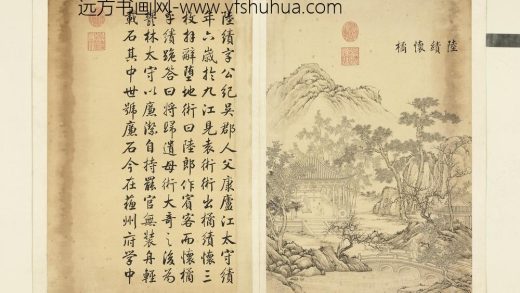 远方书画网-www.yfshuhua.com
陸績懷橘
陸績字公紀吳郡人父康廬江太守績
年六歲於九江見袁術術出橘績懷三
枚拜辭墮地術曰陸郎作賓客而懷橘
乎績跪答曰將歸遺母術大奇之後為
鬱林太守以廉潔自持罷官無裝舟輕
載石其中世號廉石今在蘇州府學中